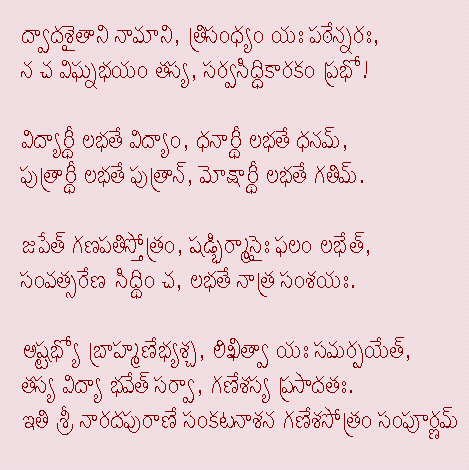 ద్వాదశైతాని నామాని, త్రిసంధ్యం యః పఠేన్నరః,
న చ విఘ్నభయం తస్య, సర్వసిద్ధికారకం ప్రభో!
విద్యార్థీ లభతే విద్యాం, ధనార్థీ లభతే ధనమ్,
పుత్రార్థీ లభతే పుత్రాన్, మోక్షార్థీ లభతే గతిమ్.
జపేత్ గణపతిస్తోత్రం, షడ్భిర్మాసైః ఫలం లభేత్,
సంవత్సరేణ సిద్ధిం చ, లభతే నాత్ర సంశయః.
అష్టభ్యో బ్రాహ్మణేభ్యశ్చ, లిఖిత్వా యః సమర్పయేత్,
తస్య విద్యా భవేత్ సర్వా, గణేశస్య ప్రసాదతః.
ఇతి శ్రీ నారదపురాణే సంకటనాశన గణేశసోత్రం సంపూర్ణమ్